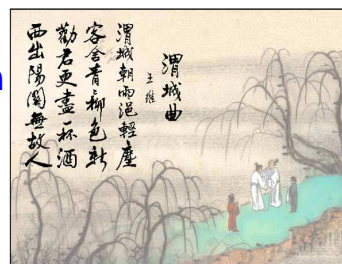 渭城曲
王維
渭城朝雨浥輕塵
客舍青〻柳色新
勸君更盡一杯酒
西出陽關無故人